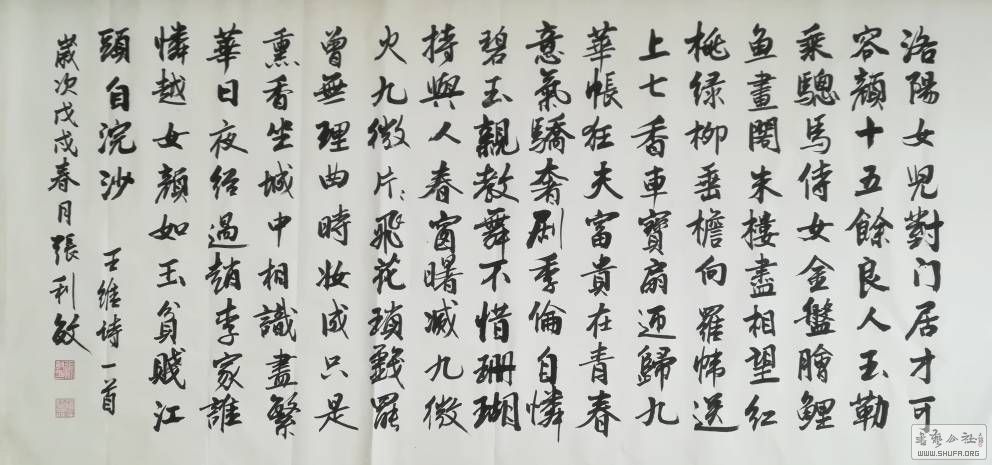 洛陽女兒對门居才可
容顏十五餘良人玉勒
乘驄馬侍女金盤膾鯉
鱼畫閣朱樓盡相望红
桃绿柳垂檐向羅帏送
上七香車寶扇迎歸九
華帳狂夫富貴在青春
意氣驕奢劇季倫自憐
碧玉親教舞不惜珊瑚
持與人春窗曙滅九微
火九微片々飛花瑣戲罷
曾無理曲時妝成只是
熏香坐城中相識盡繁
華日夜经過趙李家誰
憐越女顏如玉貧賤江
頭自浣沙 王維詩一首
歲次戊戌春月張利敏
書藝公社
WWW.SHUFA.ORG